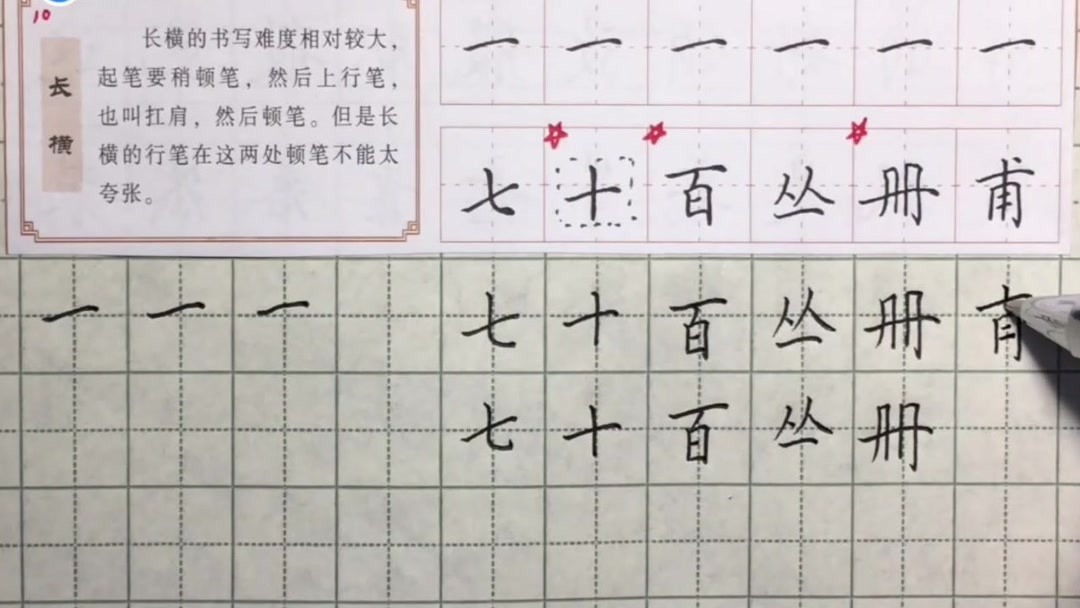 10
长横
长横的书写难度相对较大，
起笔要稍顿笔，然后上行笔，
也叫扛肩，然后顿笔。但是长
横的行笔在这两处顿笔不能太
夸张。
一 一 一 一 一 一
七 十 百 丛 册 甫
一 一 一 七 十 百 丛 册
七 十 百 丛 册